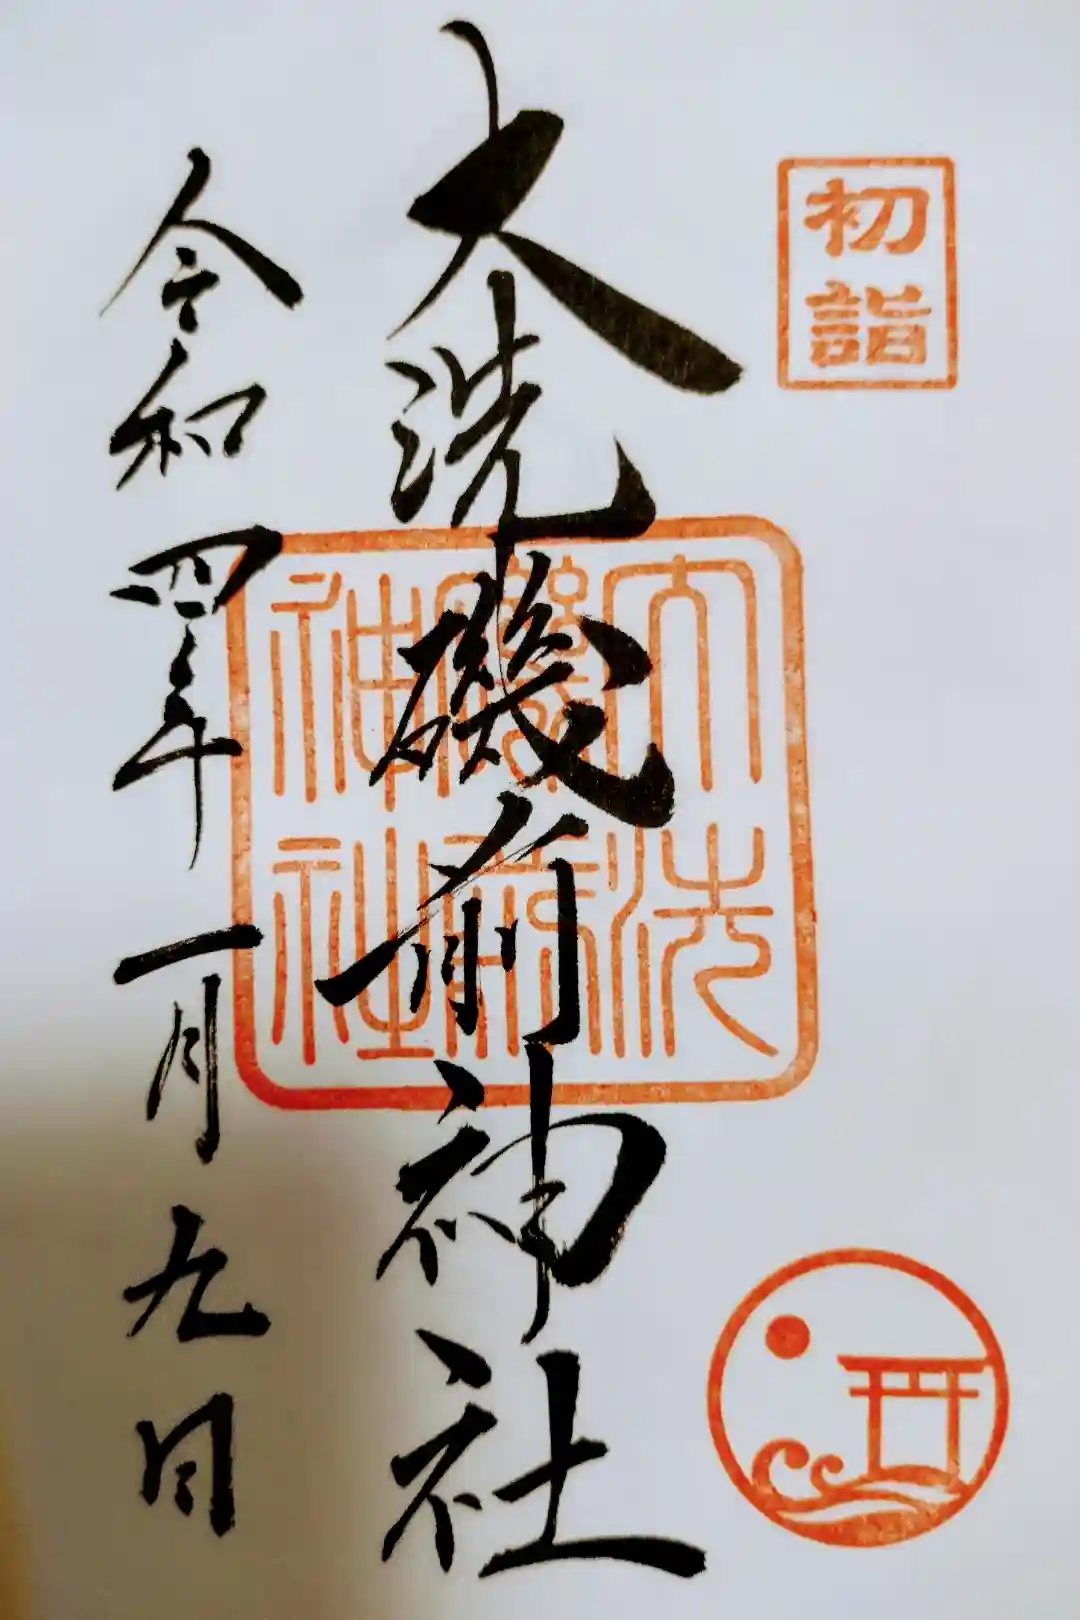 初詣
大洗磯前神社
大洗磯前神社
令和四年一月九日